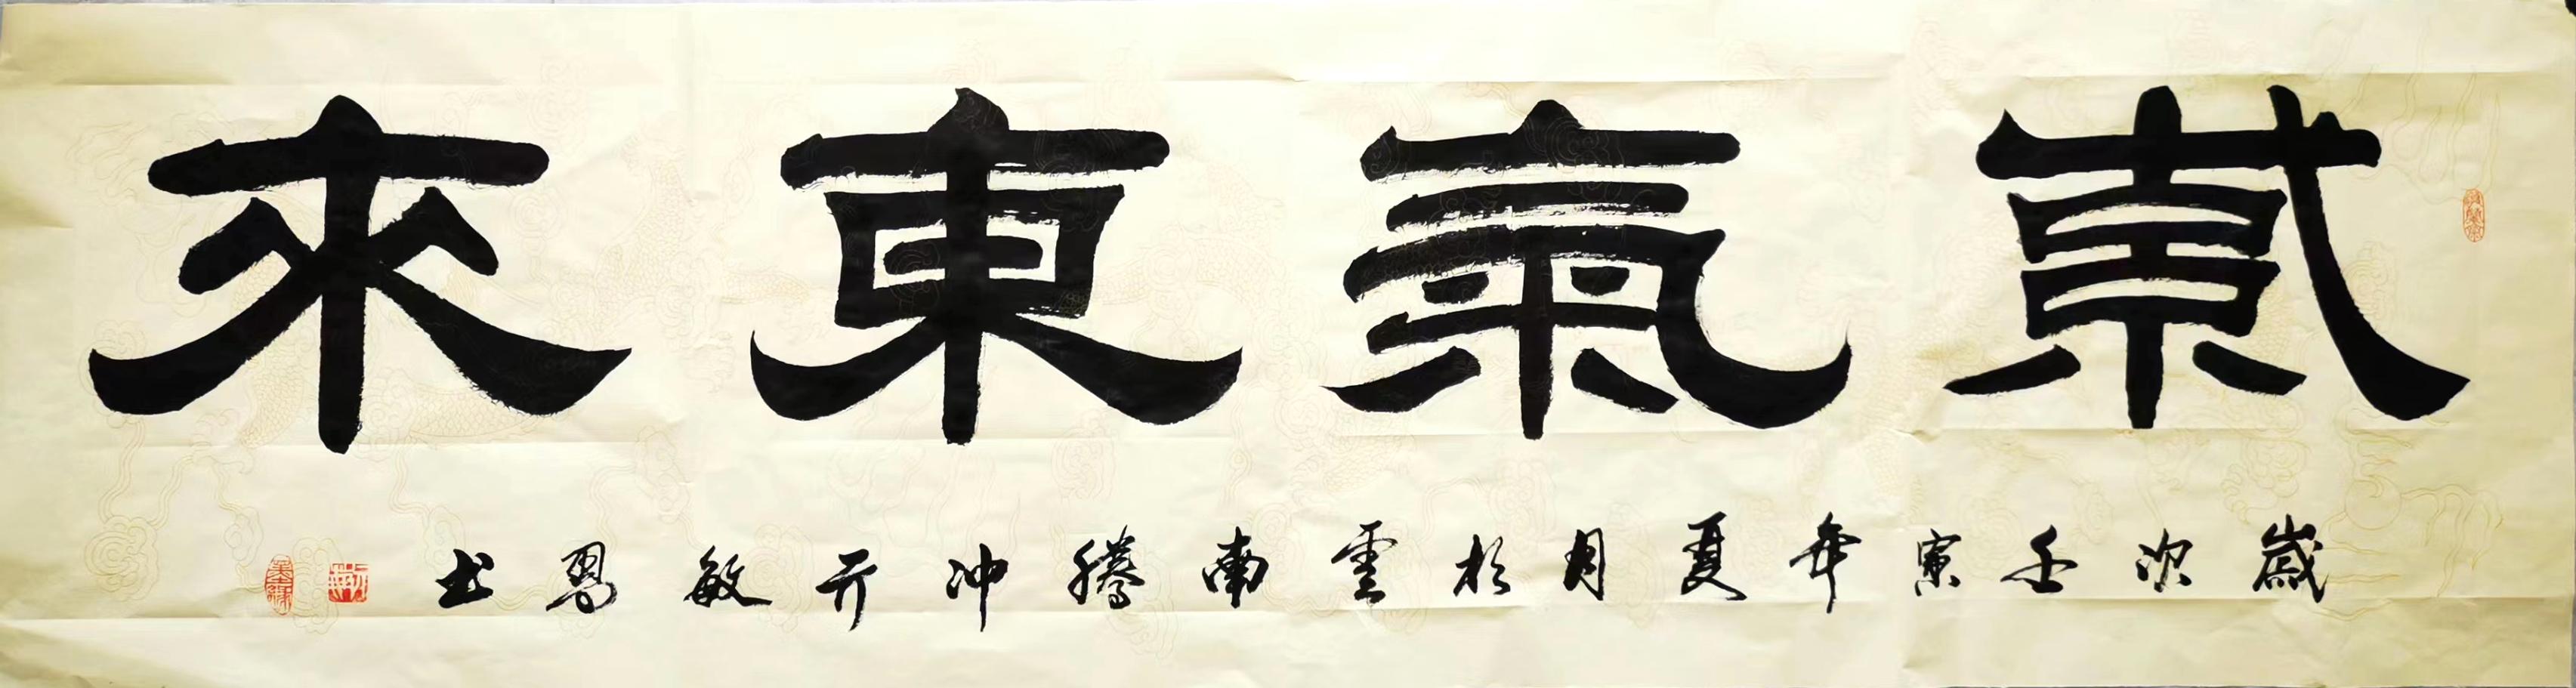 氣東來
歲次壬寅年夏月於雲南騰冲亓敏鳳书